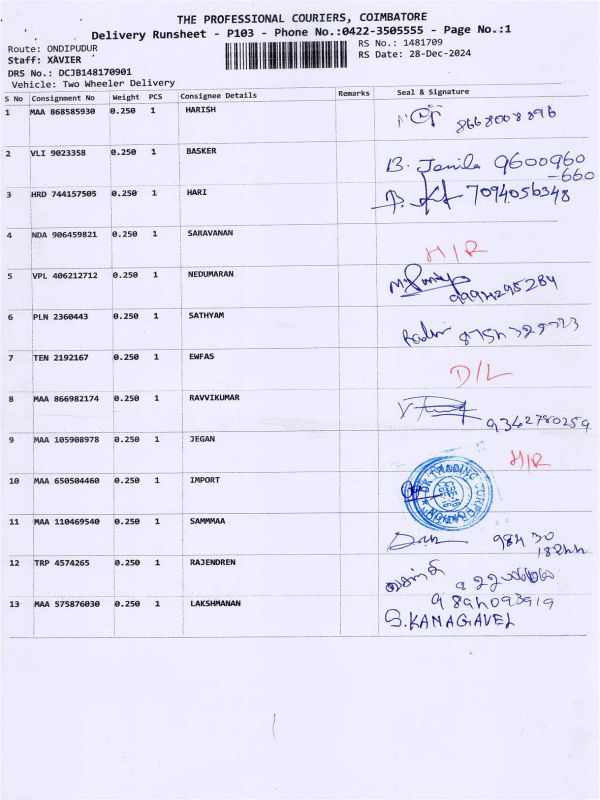 THE PROFESSIONAL COURIERS, COIMBATORE
Delivery Runsheet - P103 - Phone No.:0422-3505555 - Page No.:1
Route: ONDIPUDUR
RS No.: 1481709
Staff: XAVIER
RS Date: 28-Dec-2024
DRS No.: DCJB148170901
Vehicle: Two Wheeler Delivery
S No Consignment No Weight PCS Consignee Details Remarks Seal & Signature
1 MAA 868585930 0.250 1 HARISH 8668008896
2 VLI 9023358 0.250 1 BASKER B. Jamila 9600960
-660
3 HRD 744157505 0.250 1 HARI 7094056348
4 NDA 906459821 0.250 1 SARAVANAN H/R
5 VPL 406212712 0.250 1 NEDUMARAN 9994295284
6 PLN 2360443 0.250 1 SATHYAM
7 TEN 2192167 0.250 1 EWFAS D/L
8 MAA 866982174 0.250 1 RAVVIKUMAR 9342780259
9 MAA 105908978 0.250 1 JEGAN H/R
10 MAA 650504460 0.250 1 IMPORT TRADING CORPORATION
11 MAA 110469540 0.250 1 SAMMMAA
12 TRP 4574265 0.250 1 RAJENDREN
13 MAA 575876030 0.250 1 LAKSHMANAN
S. KANAGAVEL